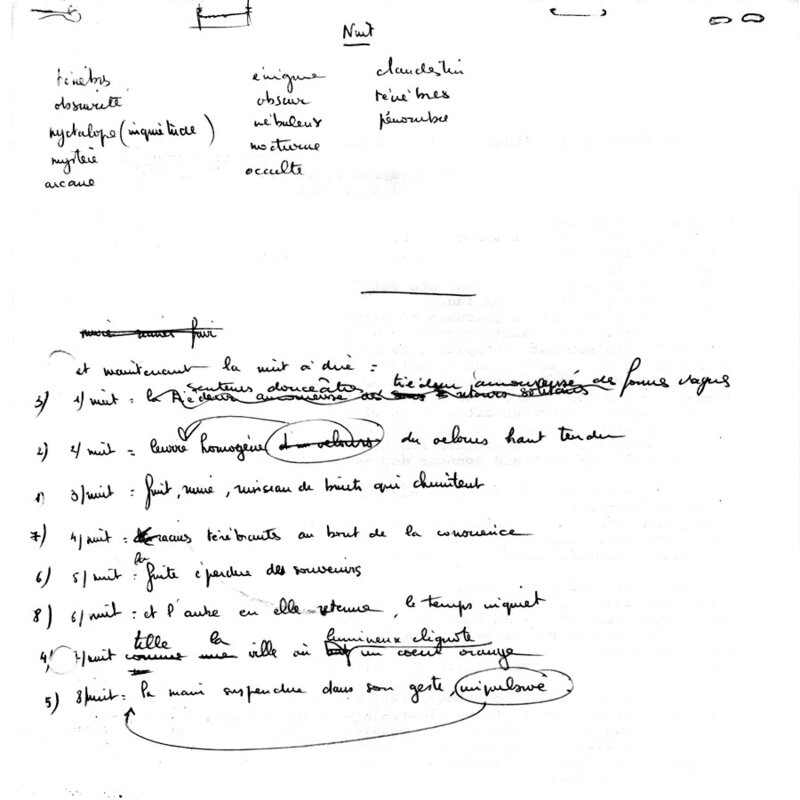 Nuit
ténèbres énigme clandestin
obscurité obscur ténèbres
nyctalope (inquiétude) nébuleux pénombre
mystère nocturne
arcane occulte
fuir
et maintenant la nuit à dire =
senteurs douceâtres tiédeur amoureuse de formes vagues
3) 1/ nuit = la tiédeur amoureuse
2) 2/ nuit = leurre homogène du velours haut tendu
1) 3/ nuit : fruit, ruisseau de bruits qui
7) 4/ nuit : térébrants au bout de la conscience
la
6) 5/ nuit : fuite éperdue des souvenirs
8) 6/ nuit : et l'autre en elle retenue, le temps inquiet
telle la lumineux clignote
4) 7/ nuit comme une ville où un coeur orange
5) 8/ nuit = la main suspendue dans son geste, impulsive